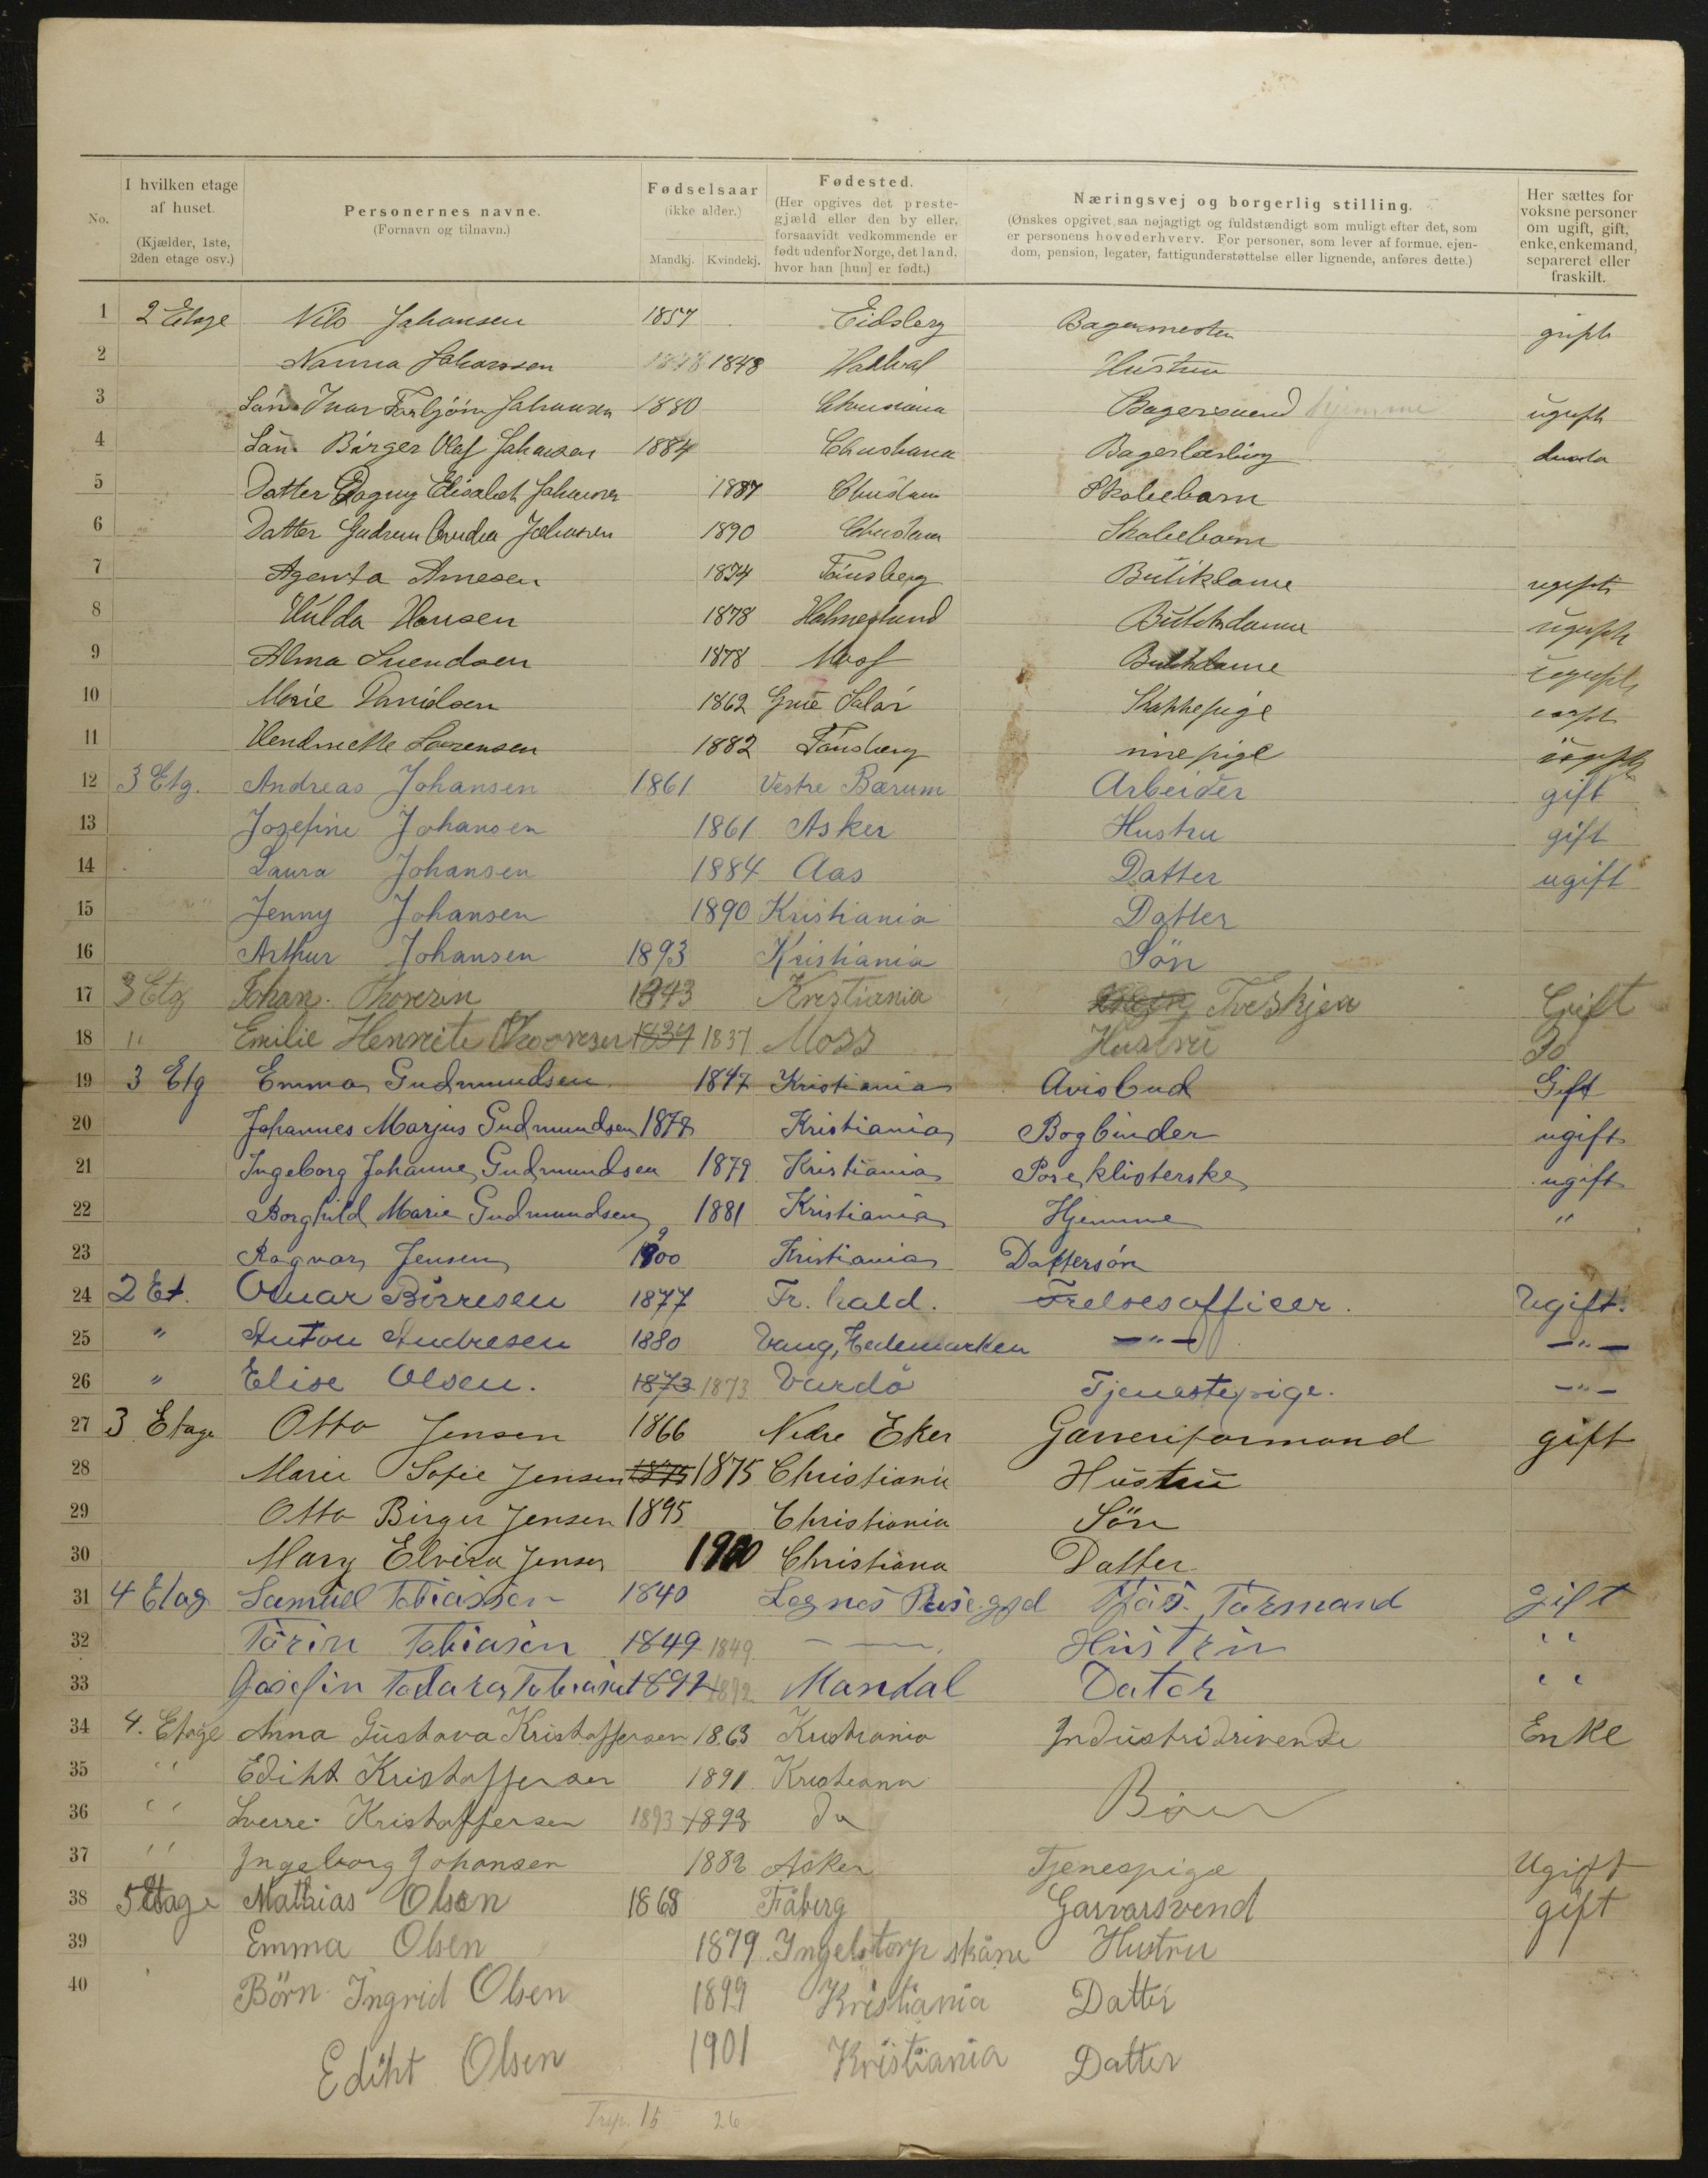 No.
I hvilken etage af huset. (Kjælder, 1ste, 2den etage osv.)
Personernes navne. (Fornavn og tilnavn.)
Fødselsaar (ikke alder.) Mandkj. Kvindekj.
Fødested. (Her opgives det prestegjæld eller den by eller, forsaavidt vedkommende er født udenfor Norge, det land, hvor han [hun] er født.)
Næringsvej og borgerlig stilling. (Ønskes opgivet saa nøjagtigt og fuldstændigt som muligt efter det, som er personens hovederhverv. For personer, som lever af formue, ejendom, pension, legater, fattigunderstøttelse eller lignende, anføres dette.)
Her sættes for voksne personer om ugift, gift, enke, enkemand, separeret eller fraskilt.
1 2 Etage Nils Johansen 1857 Eidsberg Bagermester gift
2 Nanna Johanssen 1848 1848 Hustru
3 Sön Ivar Torbjörn Johansen 1880 Christiania Bagersvend hjemme ugift
4 Sön Birger Olaf Johansen 1884 Christiania Bagerlærling
5 Datter Dagny Elisabet Johansen 1887 Christiania Skolebarn
6 Datter Gudrun Johansen 1890 Christiania Skolebarn
7 Arnesen Tönsberg Butikdame ugift
8 Hulda Hansen 1878 Butikdame ugift
9 Alma Svendsen 1878 Moss Butikdame ugift
10 Marie Danielsen 1862 Grue Solør ugift
11 Hendriette Lorensen 1882 Tönsberg ugift
12 3 Etg. Andreas Johansen 1861 Vestre Bærum Arbeider gift
13 Josefine Johansen 1861 Asker Hustru gift
14 Laura Johansen 1884 Aas Datter ugift
15 Jenny Johansen 1890 Kristiania Datter
16 Arthur Johansen 1893 Kristiania Sön
17 3 Etg Johan Thoresen 1843 Krestiania Gift
18 " Emilie Henreite Thooresen 1837 1837 Moss Hustru Do
19 3 Etg Emma Gudmundsen 1847 Kristiania Avisbud Gift
20 Johannes Marius Gudmundsen Kristiania Bogbinder ugift
21 Ingeborg Johanne Gudmundsen 1879 Kristiania Poseklisterske ugift
22 Borghild Marie Gudmundsen 1881 Kristiania Hjemme "
23 Ragnar Jensen 1900 Kristiania Dattersön
24 2 Et. Birresen 1877 Fr. hald. Frelsesofficer. Ugift.
25 " Anton Andresen 1880 Vang, Hedemarken —"— —"—
26 " Elise Olsen. 1873 1873 Vardö Tjenestepige. —"—
27 3 Etage Otto Jensen 1866 Nedre Eker Garveriformand gift
28 Marie Sofie Jensen 1875 1875 Christiania Hustru
29 Otto Birger Jensen 1895 Christiania Sön
30 Mary Elvira Jensen 1900 Christiana Datter
31 4 Etag Samuel Tobiassen 1840 Formand gift
32 Torin Tobiasen 1849 1849 — — Hustru "
33 Josefin 1892 1892 Mandal Dater "
34 4. Etage Anna Gustava Kristoffersen 1863 Kristiania Industridrivende Enke
35 " Ediht Kristoffersen 1891 Kristiania Börn
36 " Sverre Kristoffersen 1893 1893 do
37 " Ingeborg Johansen 1882 Asker Tjenespige Ugift
38 5 Etage Mathias Olsen 1868 Fåberg Garvarsvend gift
39 Emma Olsen 1879 Ingelstorp skåne Hustru
40 Börn Ingrid Olsen 1899 Kristiania Datter
Ediht Olsen 1901 Kristiania Datter
15 26